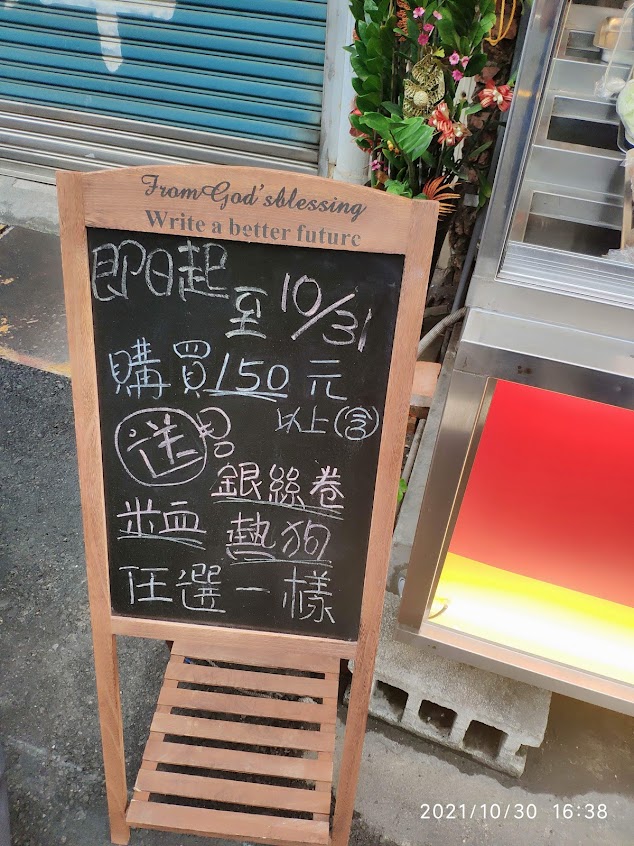 From God's blessing
Write a better future
即日起
至10/31
購買150元
以上(含)
送
銀絲卷
米血 熱狗
任選一樣
2021/10/30 16:38